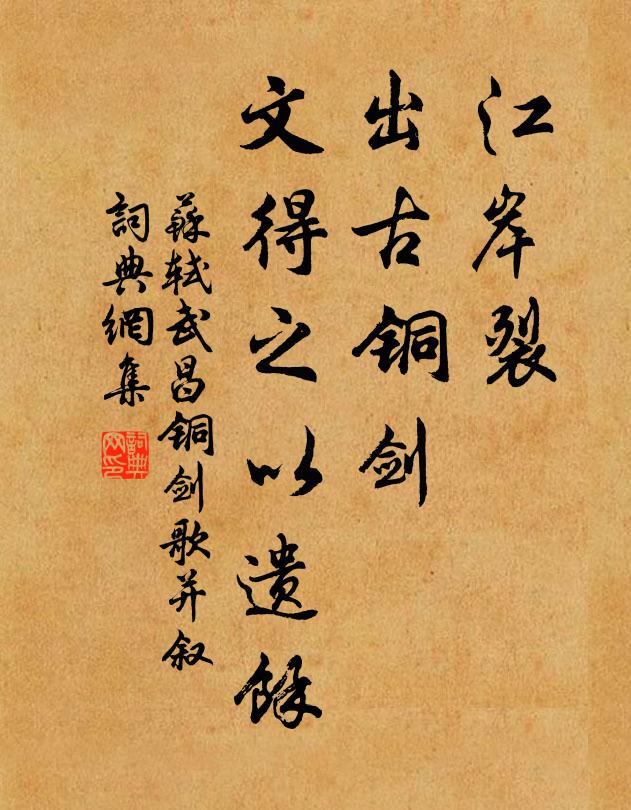 江岸裂
出古铜剑
文得之以遗馀
蘇軾武昌铜剑歌并叙
詞典網集
詞典网印